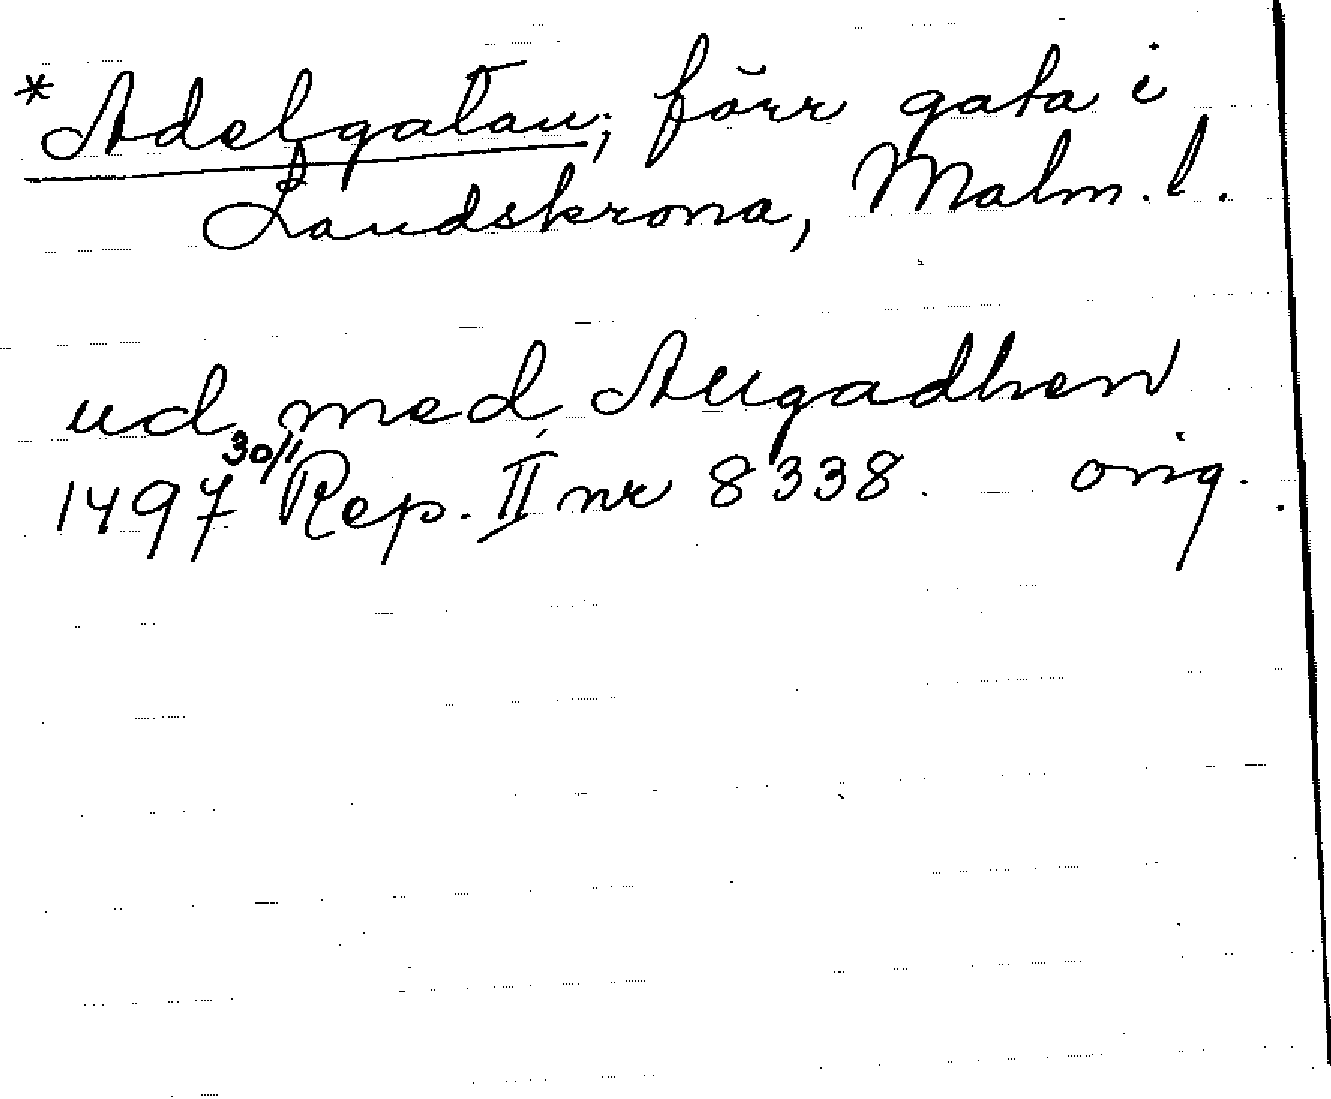 *Adelgatan, förr gata i
Landskrona, Malm. l.
ud med Allgadhen
1497 30/1 Rep. II nr 8338. orig.